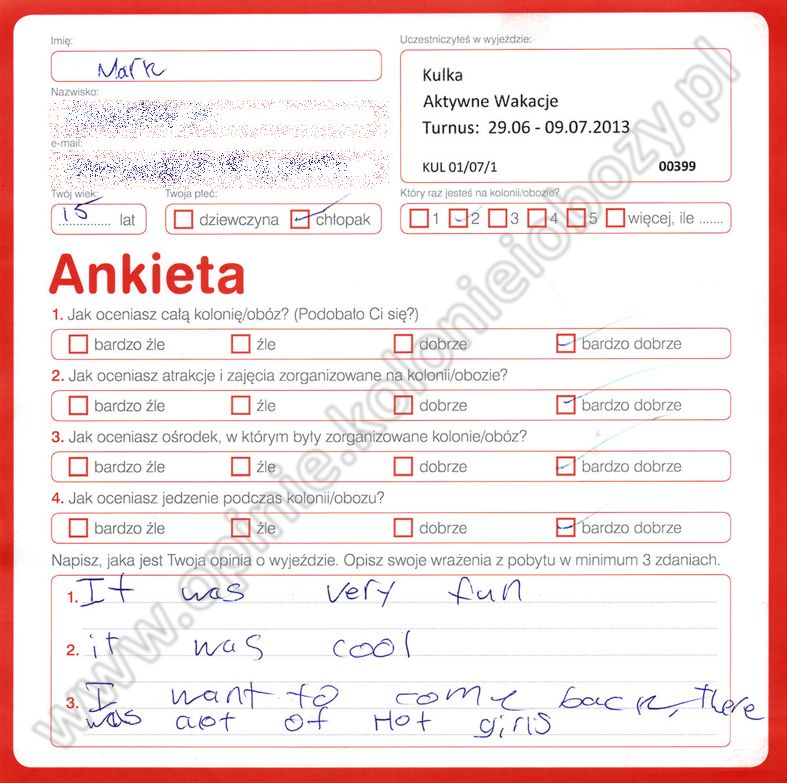 Imię:
Mark
Uczestniczyłeś w wyjeździe:
Kulka
Aktywne Wakacje
Turnus: 29.06 - 09.07.2013
KUL 01/07/1 00399
Nazwisko:
e-mail:
Twój wiek:
15 lat
Twoja płeć:
dziewczyna chłopak
Który raz jesteś na kolonii/obozie?
1 2 3 4 5 więcej, ile .......
Ankieta
1. Jak oceniasz całą kolonię/obóz? (Podobało Ci się?)
bardzo źle źle dobrze bardzo dobrze
2. Jak oceniasz atrakcje i zajęcia zorganizowane na kolonii/obozie?
bardzo źle źle dobrze bardzo dobrze
3. Jak oceniasz ośrodek, w którym były zorganizowane kolonie/obóz?
bardzo źle źle dobrze bardzo dobrze
4. Jak oceniasz jedzenie podczas kolonii/obozu?
bardzo źle źle dobrze bardzo dobrze
Napisz, jaka jest Twoja opinia o wyjeździe. Opisz swoje wrażenia z pobytu w minimum 3 zdaniach.
1. It was very fun
2. it was cool
3. I want to come back, there
was aot of Hot girls
www.opinie.kolonieiobozy.pl